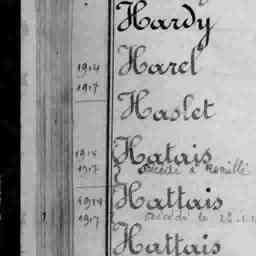 Hardy
1914 Harel
1917
Haslet
1914 Hatais
1917 décédé à
1914 Hattais
1917 décédé le 22
Hattais